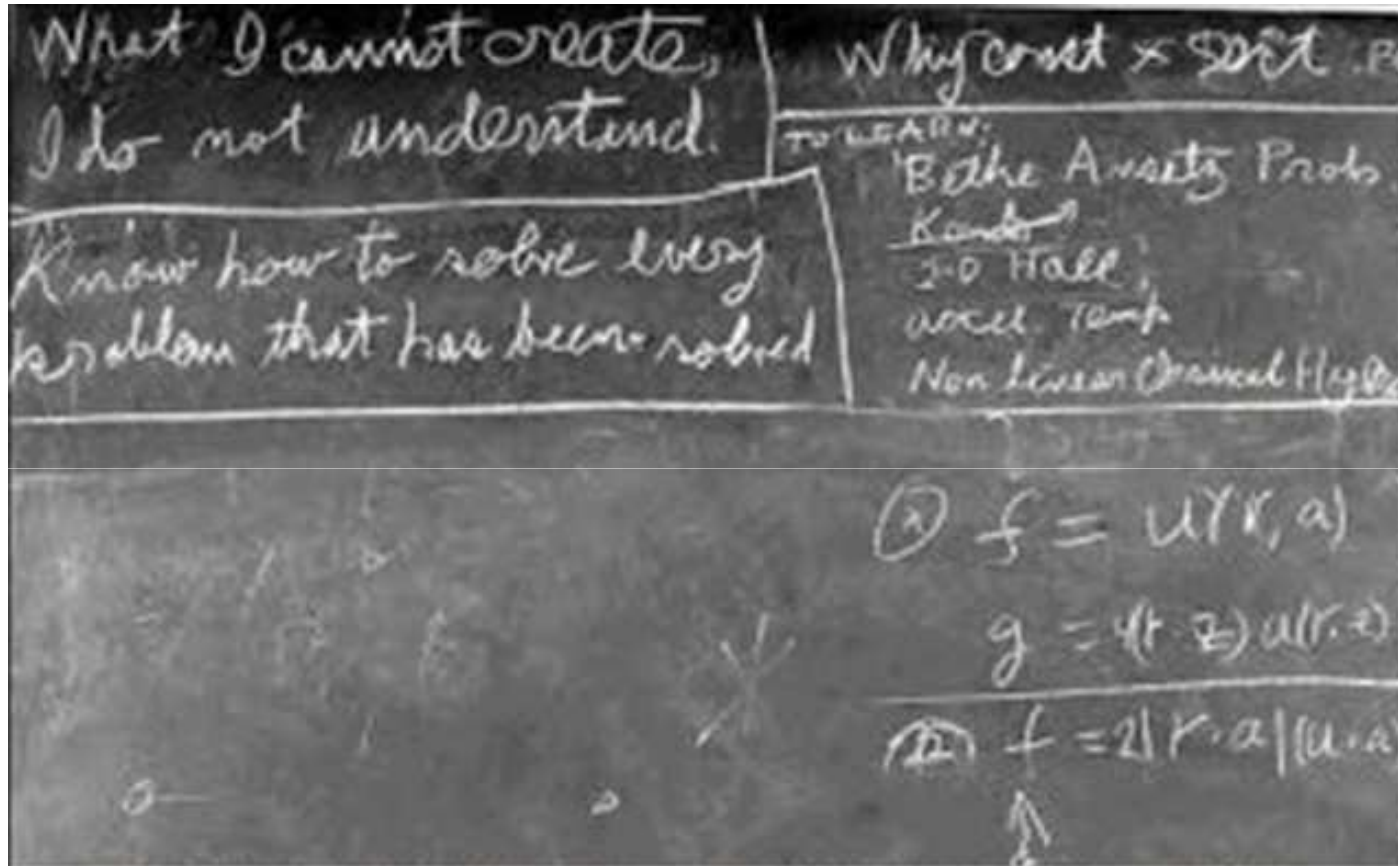 What I cannot create,
I do not understand.
Know how to solve every
problem that has been solved
Why const × sort .
TO LEARN:
Bethe Ansatz Prob
Kondo
2-D Hall
accel. Temp
Non Linear Classical Hydro
f = u(r, a)
g = 4(r z) u(r. z)
f = 2|r.a|(u.a